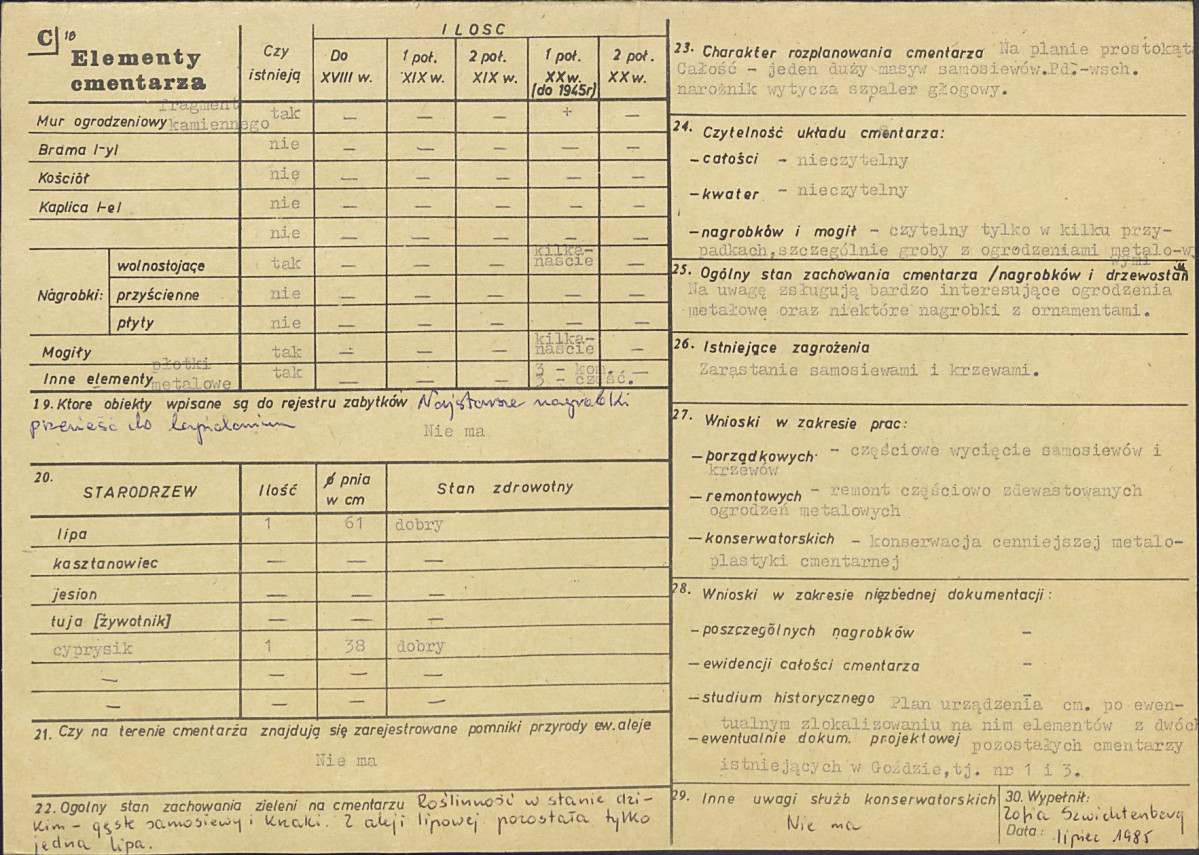 C 18
Elementy cmentarza
Czy istnieją
ILOSC
Do XVIII w.
1 poł. XIX w.
2 poł. XIX w.
1 poł. XX w. (do 1945r)
2 poł. XX w.
Mur ogrodzeniowy fragment kamiennego tak — — — + —
Brama /-y/ nie — — — — —
Kościół nie — — — — —
Kaplica /-e/ nie — — — — —
nie — — — — —
Nagrobki:
wolnostojące tak — — — kilka-naście —
przyścienne nie — — — — —
płyty nie — — — — —
Mogiły tak — — — kilka-naście —
Inne elementy płotki metalowe tak — — — 3 - kom. 3 - część. —
19. Ktore obiekty wpisane są do rejestru zabytków Najstarsze nagrobki
przenieść do lapidarium
Nie ma
20. STARODRZEW Ilość ϕ pnia w cm Stan zdrowotny
lipa 1 61 dobry
kasztanowiec — — —
jesion — — —
tuja [żywotnik] — — —
cyprysik 1 38 dobry
— — — —
— — — —
21. Czy na terenie cmentarża znajdują się zarejestrowane pomniki przyrody ew. aleje
Nie ma
22. Ogolny stan zachowania zieleni na cmentarzu Roślinność w stanie dzi-
kim - gęste samosiewy i krzaki. Z aleji lipowej pozostała tylko
jedna lipa.
23. Charakter rozplanowania cmentarza Na planie prostokąta
Całość - jeden duży masyw samosiewów.Pd.-wsch.
narożnik wytycza szpaler głogowy.
24. Czytelność układu cmentarza:
— całości - nieczytelny
— kwater - nieczytelny
— nagrobków i mogił - czytelny tylko w kilku przy-
padkach,szczególnie groby z ogrodzeniami metalo-
wymi
25. Ogólny stan zachowania cmentarza /nagrobków i drzewostan
Na uwagę zsługują bardzo interesujące ogrodzenia
metalowe oraz niektóre nagrobki z ornamentami.
26. Istniejące zagrożenia
Zarastanie samosiewami i krzewami.
27. Wnioski w zakresie prac:
— porządkowych - częściowe wycięcie samosiewów i
krzewów
— remontowych - remont częściowo zdewastowanych
ogrodzeń metalowych
— konserwatorskich - konserwacja cenniejszej metalo-
plastyki cmentarnej
28. Wnioski w zakresie niezbednej dokumentacji:
- poszczególnych nagrobków -
— ewidencji całości cmentarza -
— studium historycznego - Plan urządzenia cm. po ewen-
tualnym zlokalizowaniu na nim elementów z dwóch
— ewentualnie dokum. projektowej pozostałych cmentarzy
istniejących w Goździe,tj. nr 1 i 3.
29. Inne uwagi służb konserwatorskich
Nie ma
30. Wypełnił:
Zofia Szwichtenberg
Data: lipiec 1985